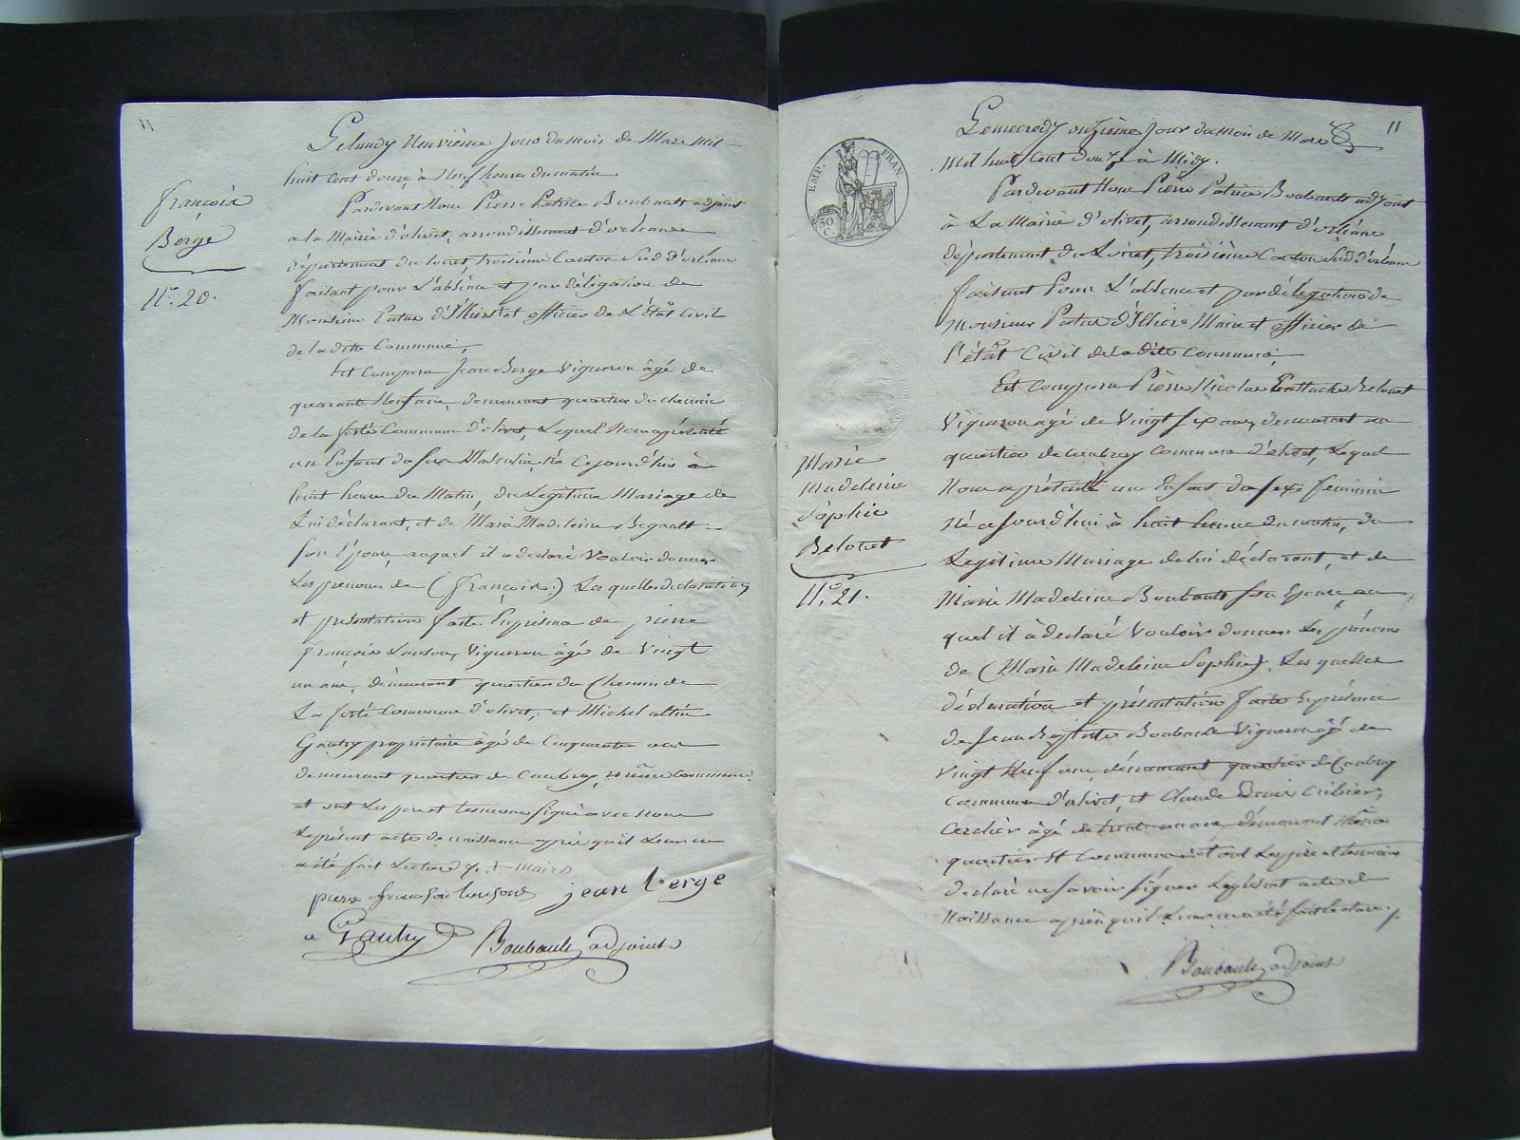 11
François
Berge
N.° 20.
Le lundy Neuvieme Jour du mois de Mars mil
huit Cent douze, à Neuf heures du matin
Pardevant Nous Pierre Patrice Boubault adjoint
a la Mairie d'olivet, arrondissement d'orleans
département du loiret, troisième Canton Sud d'orleans
faisant pour l'absence et par délégation de
Monsieur officier de l'état Civil
de la ditte Commune,
Est Comparu Jean Berge Vigneron âgé de
quarant Neuf ans, demeurant quartier du chemin
de la ferté Commune d'olivet, Lequel Nous a présenté
un Enfant du sexe Masculin, Né Cejourd'hui à
huit heures du Matin, du Légitime Mariage de
Lui déclarant, et de Marie Madeleine Regnault
son Épouse, auquel il a declaré Vouloir donner
Les prenoms de (françois.) Les quelles declaration
et présentation faites En présence de pierre
françois Vigneron âgé de Vingt
un ans, demeurant quartier du Chemin de
La ferté Commune d'olivet, et Michel
Gautry propriétaire âgé de Cinquante ans
demeurant quartier de Caubray, même Commune.
et ont Les pere et temoins signé avec Nous
Le présent acte de naissance après qu'il Leur en
a été fait Lecture
pierre françois jean berge
Gautry Boubault, adjoint
11
EMP. FRAN.
50
C.
Marie
Madeleine
Sophie
Belouet
N.° 21.
Le mercredy onzieme Jour du mois de Mars
Mil huit Cent douze à Midy.
Pardevant Nous Pierre Patrice Boubault adjoint
à La Mairie d'olivet, arrondissement d'orléans
département du Loiret, troisième Canton Sud d'orleans
faisant Pour L'absence et par délégation de
Monsieur Maire et officier de
l'état Civil de la ditte Commune,
Est Comparu Pierre Nicolas Belouet
Vigneron âgé de Vingt six ans, demeurant au
quartier de Caubray Commune d'olivet, Lequel
Nous a présenté un Enfant du sexe feminin
Né ce Jourd'hui à huit heures du matin, du
Legitime Mariage de lui déclarant, et de
Marie Madeleine Boubault son Epouse, au
quel il à declaré Vouloir donner Les prénoms
de (Marie Madeleine Sophie). Les quelles
déclaration et présentation faites En présence
de Jean Baptiste Boubault Vigneron âgé de
Vingt Neuf ans, demeurant quartier de Caubray
Commune d'olivet, et Claude Denis
Cerclier âgé de trente un ans, demeurant même
quartier et Commune, et ont Les père et temoins
déclaré ne savoir signer Le présent acte de
Naissance après qu'il Leur en a été fait Lecture
Boubault, adjoint